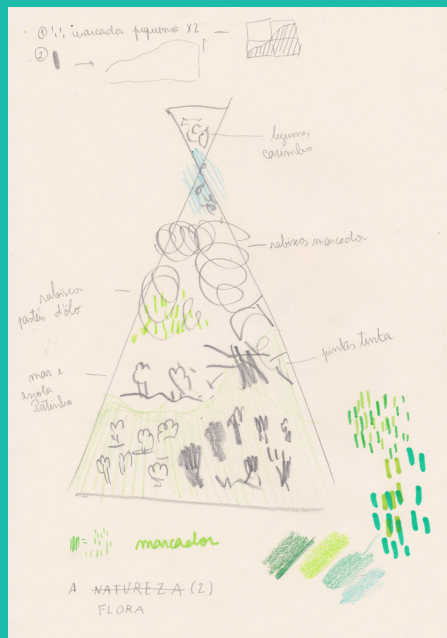 ① marcador pequeno x2 —
②
legumes
carimbo
rabiscos marcador
rabiscos
pastéis d'óleo
pintas tinta
mar e
escola
Patinho
marcador
A NATUREZA (2)
FLORA